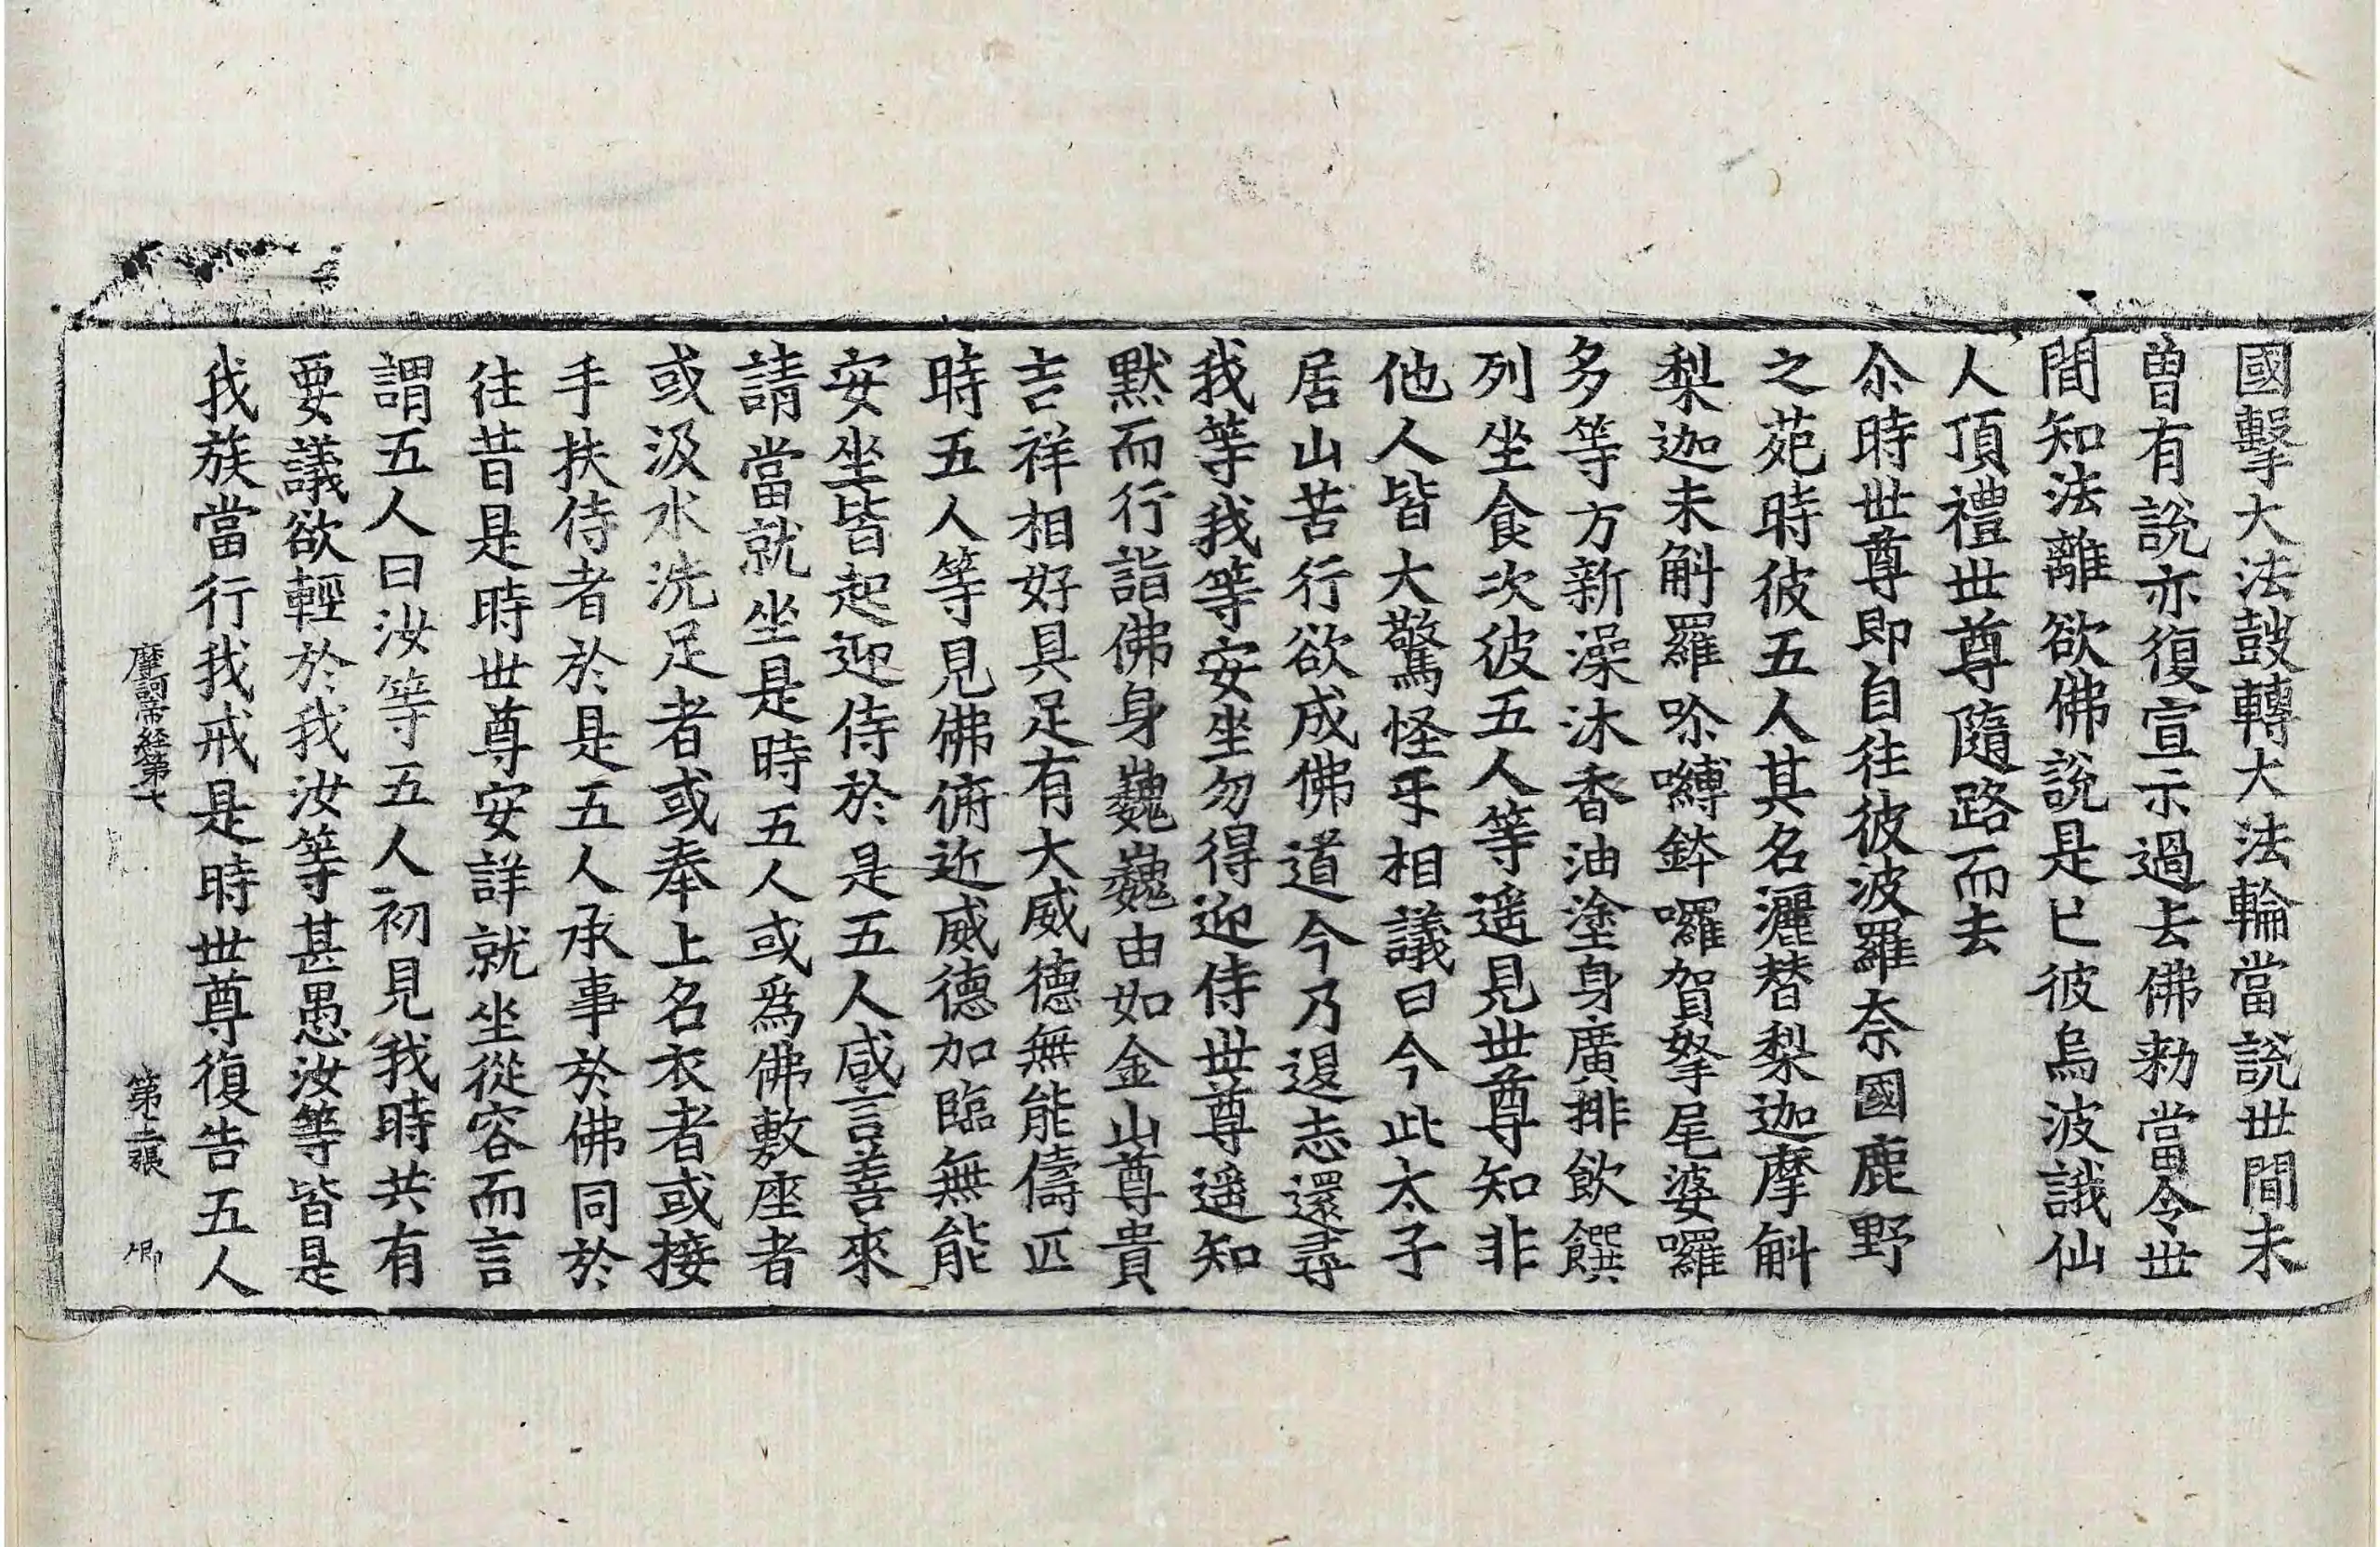 國擊大法鼓轉大法輪當說世間未
曾有說亦復宣示過去佛勑當令世
間知法離欲佛說是已彼烏波誐仙
人頂禮世尊隨路而去
尒時世尊即自往彼波羅奈國鹿野
之苑時彼五人其名灑替梨迦摩斛
梨迦未斛羅吹嚩鉢囉賀拏尾婆囉
多等方新澡沐香油塗身廣排飲饌
列坐食次彼五人等遥見世尊知非
他人皆大驚怪乎相議曰今此太子
居山苦行欲成佛道今乃退志還尋
我等我等安坐勿得迎侍世尊遥知
黙而行詣佛身巍巍由如金山尊貴
吉祥相好具足有大威德無能儔匹
時五人等見佛俯近威德加臨無能
安坐皆起迎侍於是五人咸言善來
請當就坐是時五人或爲佛敷座者
或汲水洗足者或奉上名衣者或接
手扶侍者於是五人承事於佛同於
往昔是時世尊安詳就坐從容而言
謂五人曰汝等五人初見我時共有
要議欲輕於我汝等甚愚汝等皆是
我族當行我戒是時世尊復告五人
摩訶帝経第七　第二張